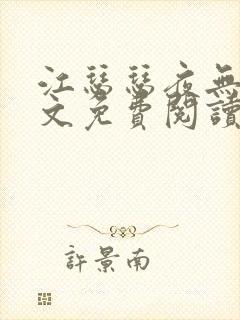 江瑟瑟夜無
文免費閱讀
許景南